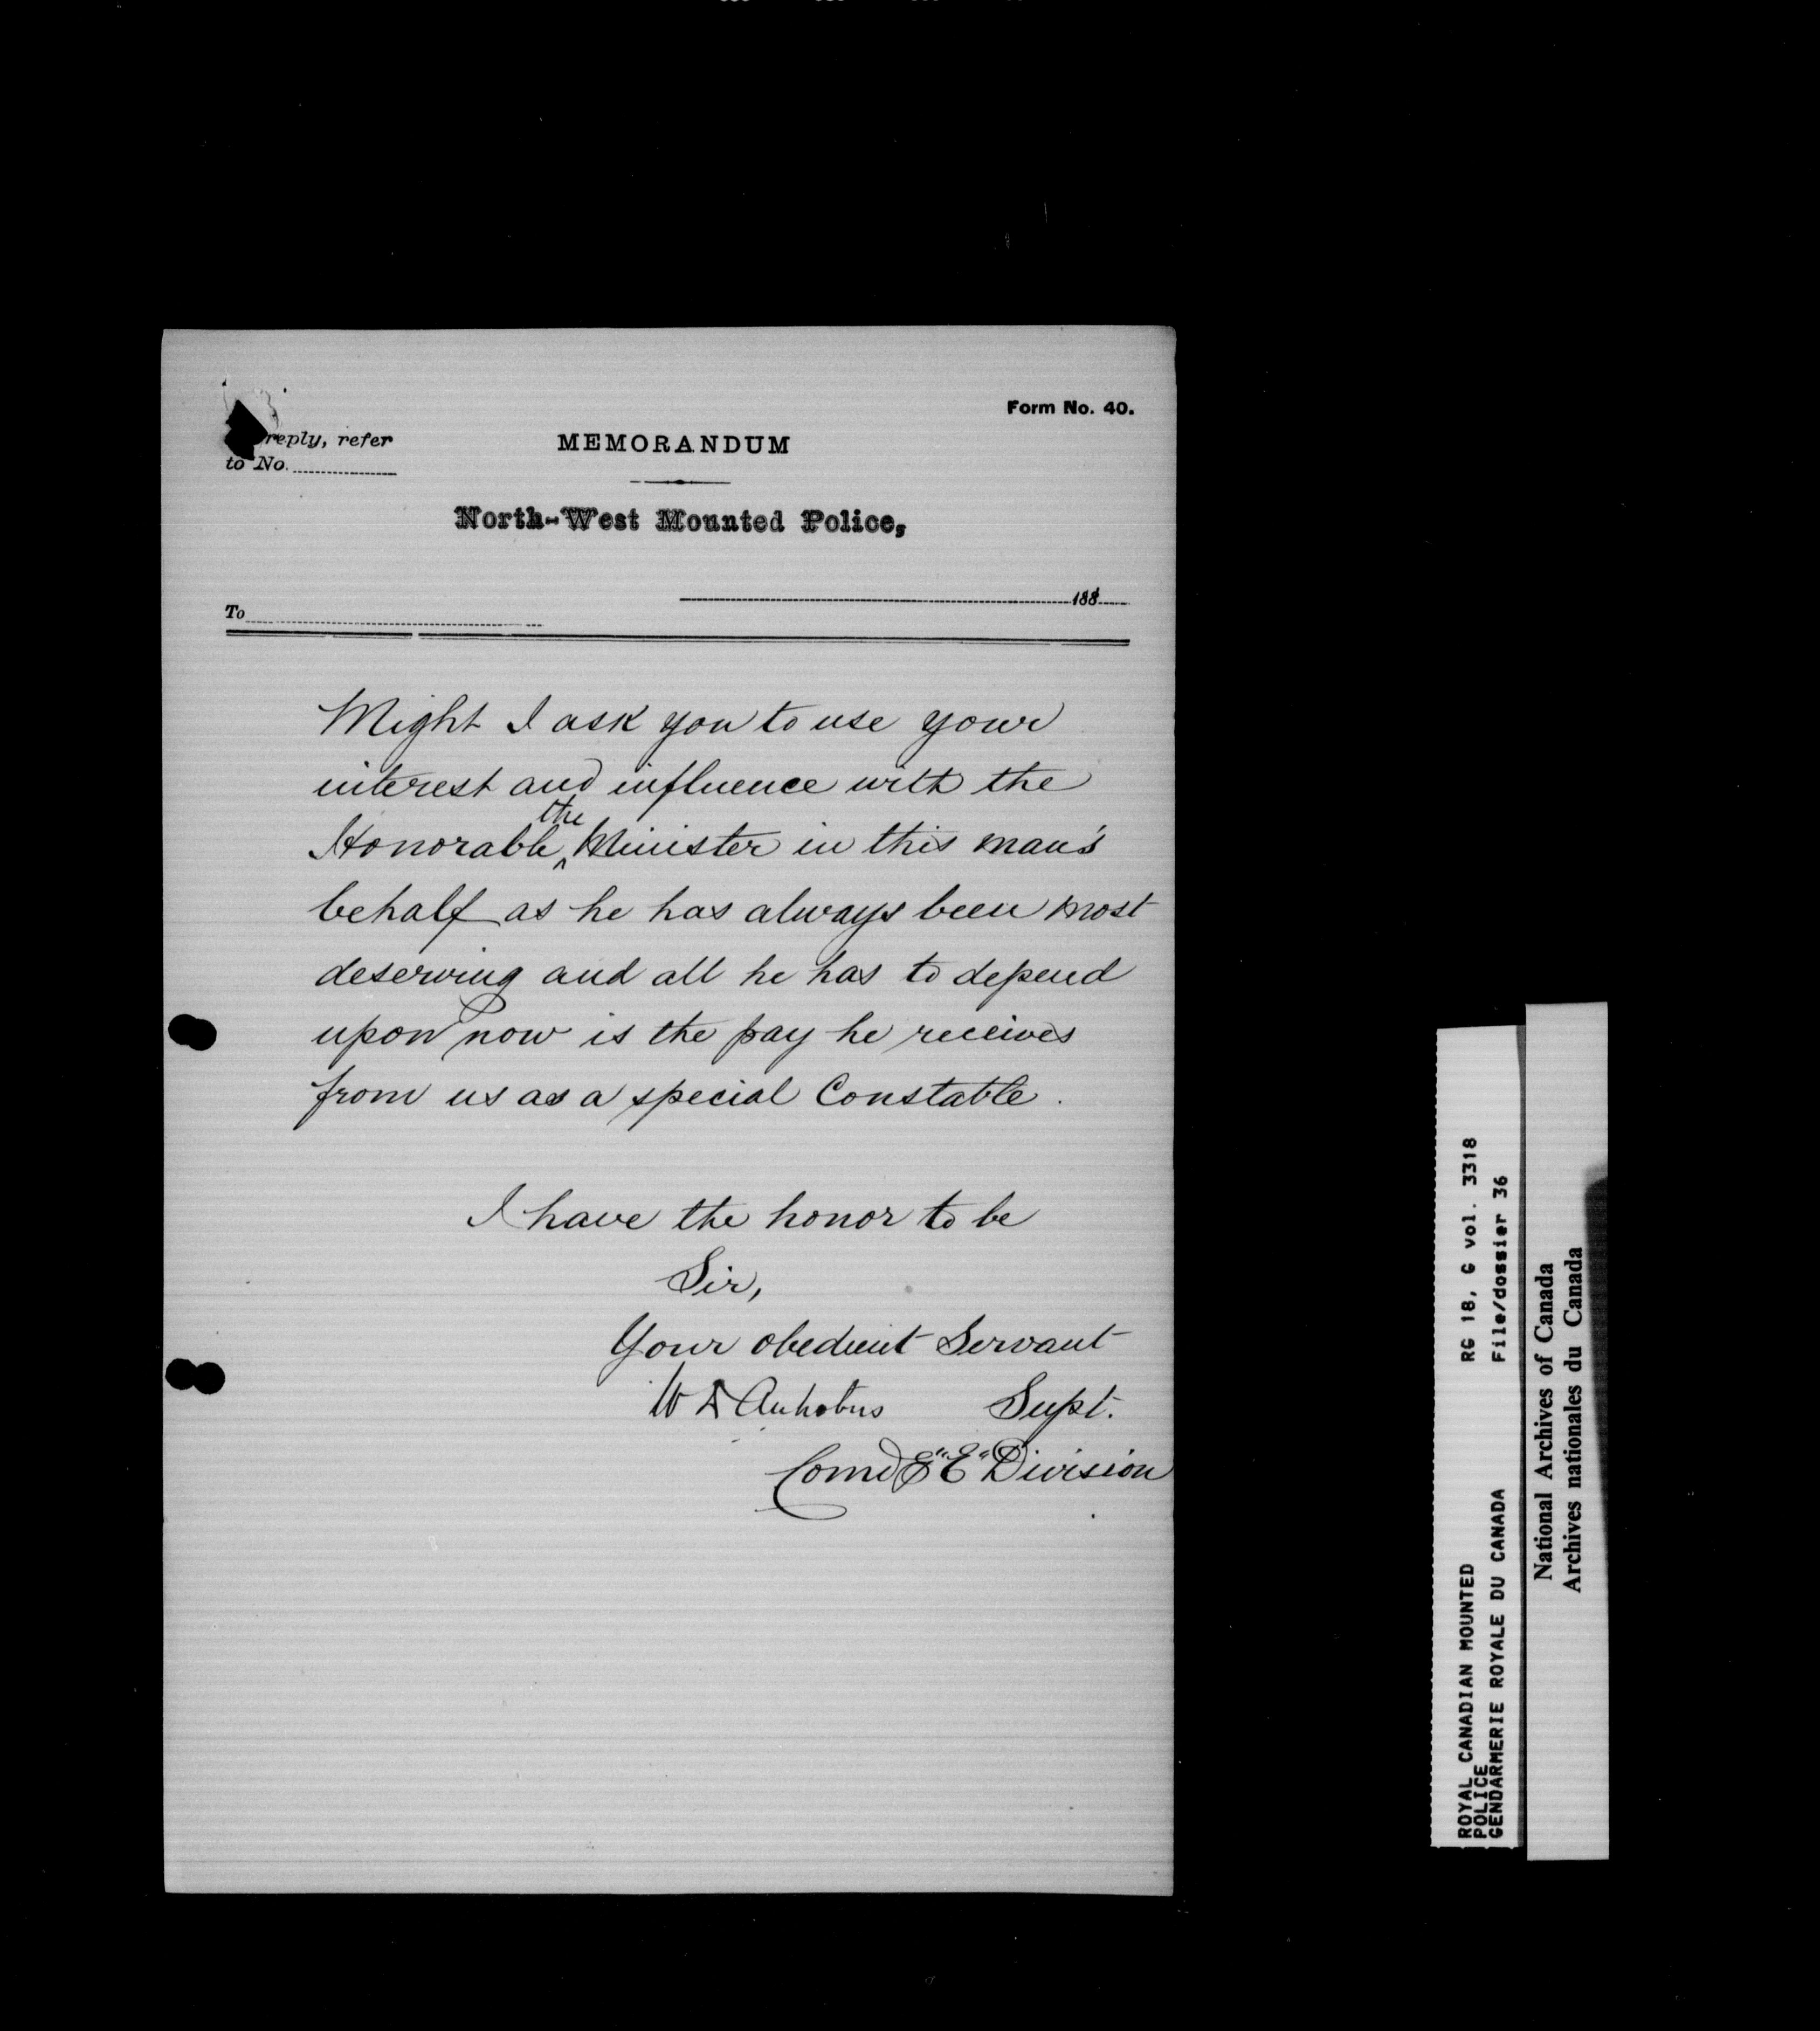 Form No. 40.
reply, refer
to No.
MEMORANDUM
North-West Mounted Police,
188
To
Might I ask you to use your
interest and influence with the
the
Honorable Minister in this man's
behalf as he has always been most
deserving and all he has to depend
upon now is the pay he receives
from us as a special Constable.
I have the honor to be
Sir,
Your obedient Servant
W D Antrobus Supt.
Comdg "E" Division
ROYAL CANADIAN MOUNTED
POLICE
GENDARMERIE ROYALE DU CANADA
RG 18, G vol. 3318
File/dossier 36
National Archives of Canada
Archives nationales du Canada